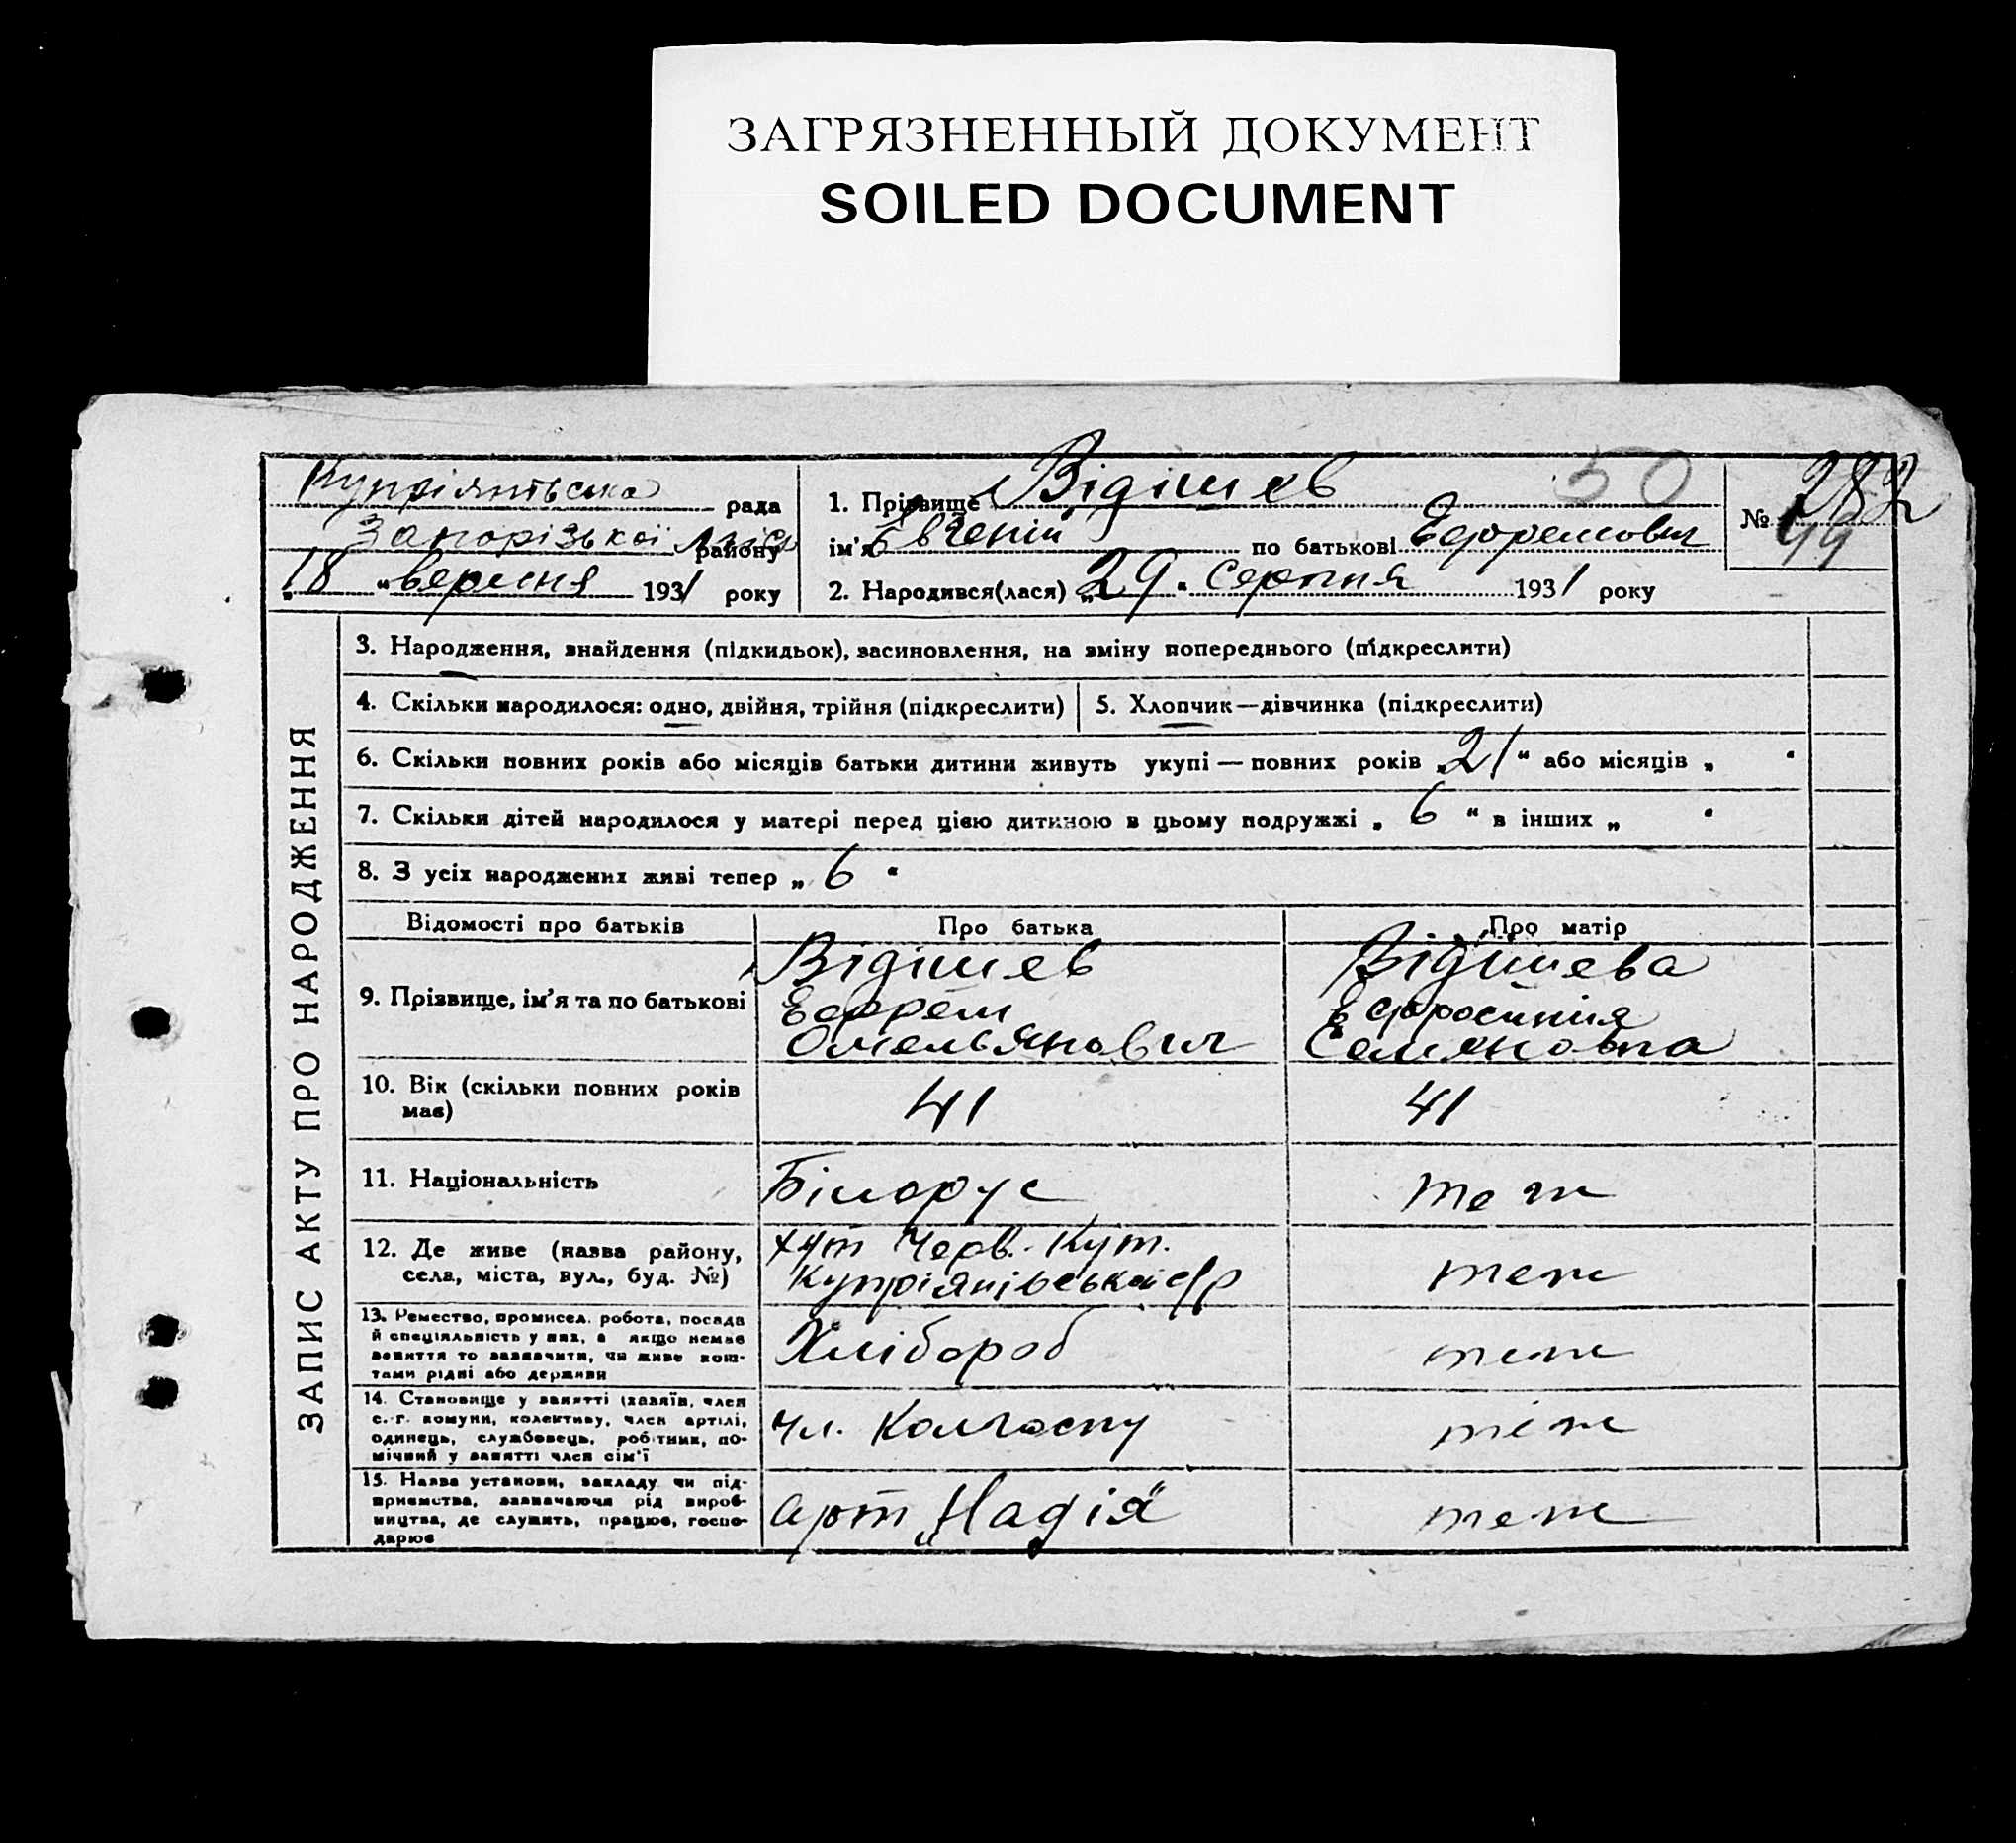 ЗАГРЯЗНЕННЫЙ ДОКУМЕНТ
SOILED DOCUMENT
Купріянівська рада
Запорізької району
"18" вересня 1931 року
1. Прізвище Відішев 50
ім'я Євгеній по батькові Ефремович
2. Народився(лася) "29" Серпня 1931 року
№ 282
99
ЗАПИС АКТУ ПРО НАРОДЖЕННЯ
3. Народження, знайдення (підкидьок), засиновлення, на зміну попереднього (підкреслити)
4. Скільки народилося: одно, двійня, трійня (підкреслити)
5. Хлопчик—дівчинка (підкреслити)
6. Скільки повних років або місяців батьки дитини живуть укупі — повних років „21“ або місяців „ “
7. Скільки дітей народилося у матері перед цією дитиною в цьому подружжі „6“ в інших „ “
8. З усіх народжених живі тепер „6“
Відомості про батьків
Про батька
Про матір
9. Прізвище, ім'я та по батькові
Відішев
Ефрем
Омельянович
Відішева
Ефросинія
Семеновна
10. Вік (скільки повних років
має)
41
41
11. Національність
Білорус
теж
12. Де живе (назва району,
села, міста, вул., буд. №)
хут Черв. Кут.
Купріянівської с/р
теж
13. Ремество, промисел, робота, посада
й спеціяльність у них, а якщо немає
заняття то зазначити, чи живе кош-
тами рідні або держави
Хлібороб
теж
14. Становище у занятті (хазяїн, член
с.-г. комуни, колективу, член артілі,
одинець, службовець, робітник, по-
мічний у занятті член сім'ї
чл. Колгоспу
теж
15. Назва установи, закладу чи під-
приємства, зазначаючи рід вироб-
ництва, де служить, працює, госпо-
дарює
арт „Надія“
теж